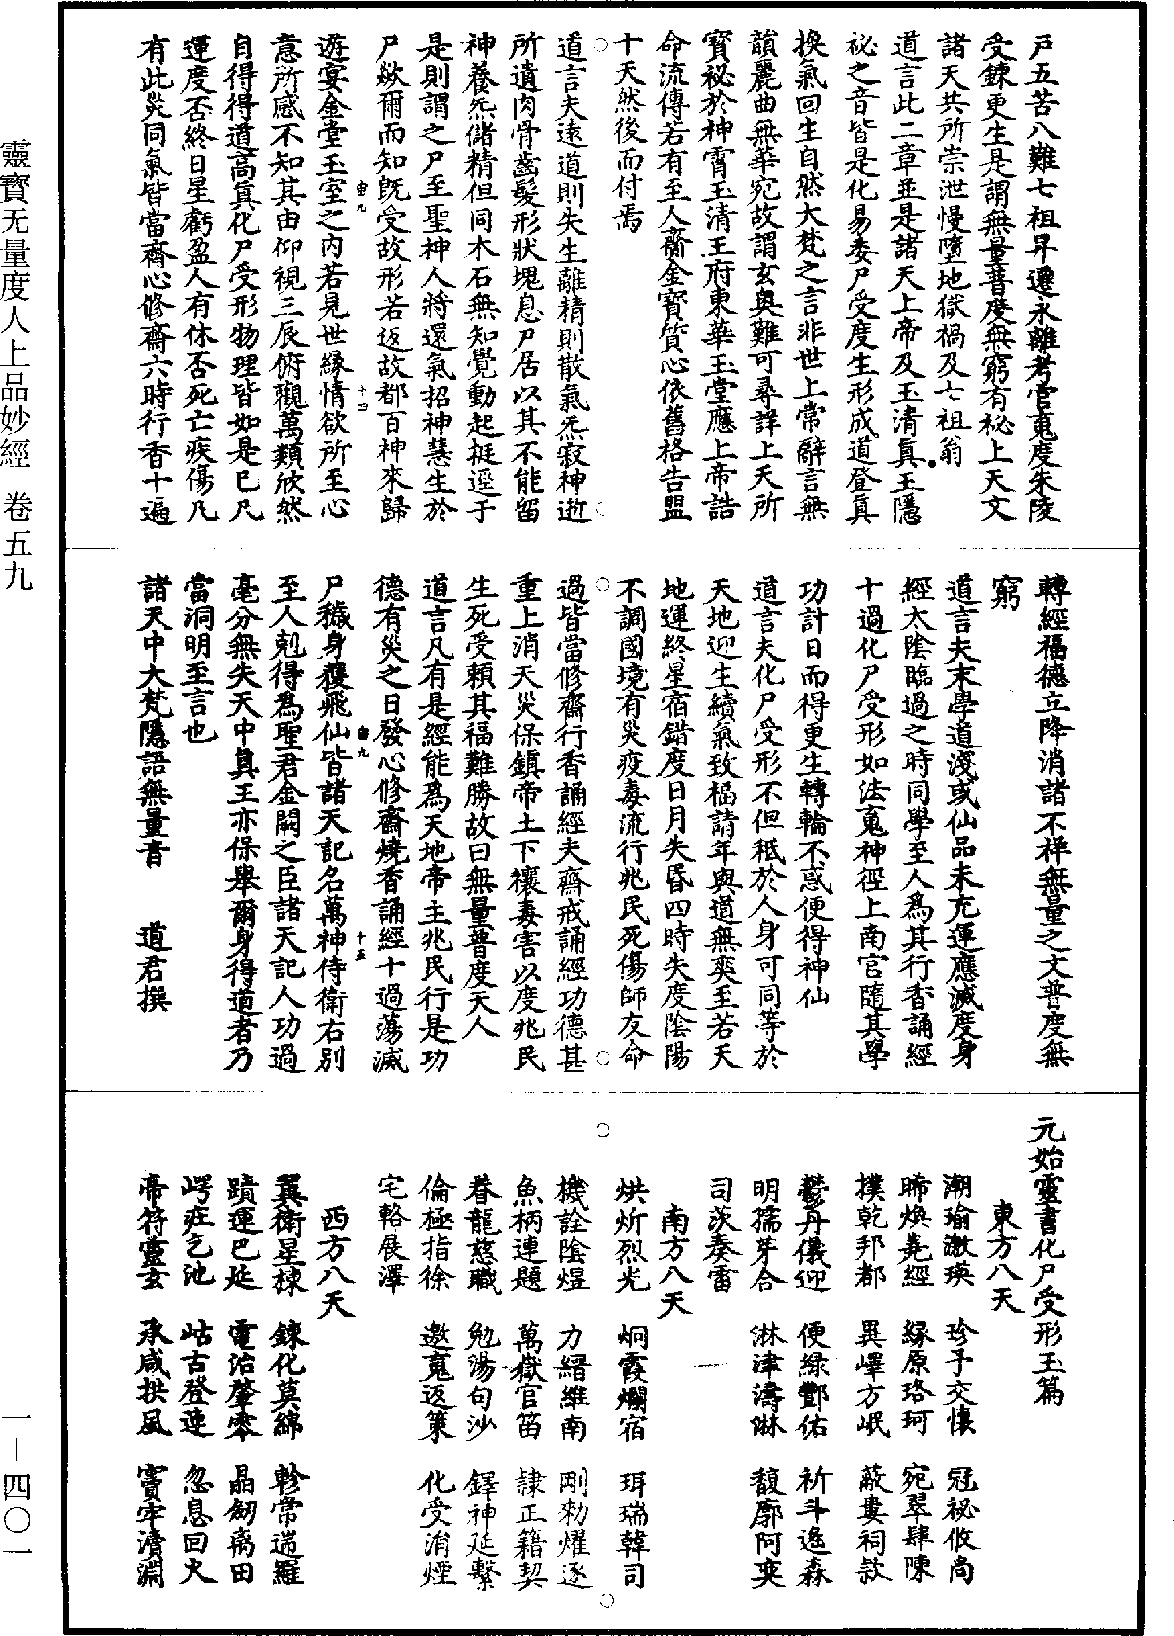 靈寶无量度人上品妙經　卷五九
一—四〇一
戶五苦八難七祖昇遷永離考官䰟度朱陵
受鍊更生是謂無量普度無窮有秘上天文
諸天共所崇泄慢墮地獄禍及七祖翁
道言此二章並是諸天上帝及玉清真王隱
祕之音皆是化易委尸受度生形成道登真
換氣回生自然大梵之言非世上常辭言無
韻麗曲無華宛故謂玄奥難可尋詳上天所
寶祕於神霄玉清王府東華玉堂應上帝誥
命流傳若有至人齎金寶質心依舊格告盟
十天然後而付焉
道言夫遠道則失生離精則散氣炁寂神逝
所遺肉骨齒髮形狀塊息尸居以其不能留
神養炁儲精但同木石無知覺動起挺逕于
是則謂之尸至聖神人將還氣招神慧生於
尸歘爾而知旣受故形若返故都百神來歸
遊宴金堂玉室之内若見世緣情欲所至心
意所感不知其由仰視三辰俯觀萬類欣然
自得得道高真化尸受形物理皆如是巳凡
運度否終日星虧盈人有休否死亡疾傷凡
有此災同氣皆當齋心修齋六時行香十遍
轉經福德立降消諸不祥無量之文普度無
窮
道言夫末學道淺或仙品未充運應滅度身
經太陰臨過之時同學至人爲其行香誦經
十過化尸受形如法䰟神徑上南宮隨其學
功計日而得更生轉輪不惑便得神仙
道言夫化尸受形不但秪於人身可同等於
天地迎生續氣致福請年與道無爽至若天
地運終星宿錯度日月失昏四時失度陰陽
不調國境有災疫毒流行兆民死傷師友命
過皆當修齋行香誦經夫齋戒誦經功德甚
重上消天災保鎮帝土下禳毒害以度兆民
生死受賴其福難勝故曰無量普度天人
道言凡有是經能爲天地帝主兆民行是功
德有災之日發心修齋燒香誦經十過蕩滅
尸穢身獲飛仙皆諸天記名萬神侍衛右別
至人剋得爲聖君金闕之臣諸天記人功過
毫分無失天中真王亦保舉爾身得道者乃
當洞明至言也
諸天中大梵隱語無量音　　道君撰
元始靈書化尸受形玉篇
東方八天
潮瑜激瑛　珍予交懷　冠祕攸尚
晞煥堯經　緣原珞珂　宛翠肆陳
撲乾邦都　異嶧方岷　蔽婁祠款
鬱丹儀迎　便綠酆佑　祈斗逸森
明孺芽合　淋津濤琳　馥廓阿爽
司茨奏雷
南方八天
烘炘烈光　炯霞爛宿　珥瑞韓司
機詮陰煜　力縉維南　剛勑燿逐
魚柄連題　萬嶽官笛　隸正籍契
眷龍慈職　勉湯句沙　鐸神延繫
倫極指徐　邀䰟返策　化受消煙
宅輅展澤
西方八天
翼衛星棟　鍊化莫綿　軫常遄羅
蹟運巴延　電治肇零　晶劒离田
崿疘乞池　岵古登連　忽息回火
帝符靈玄　承咸拱風　竇牢濟淵